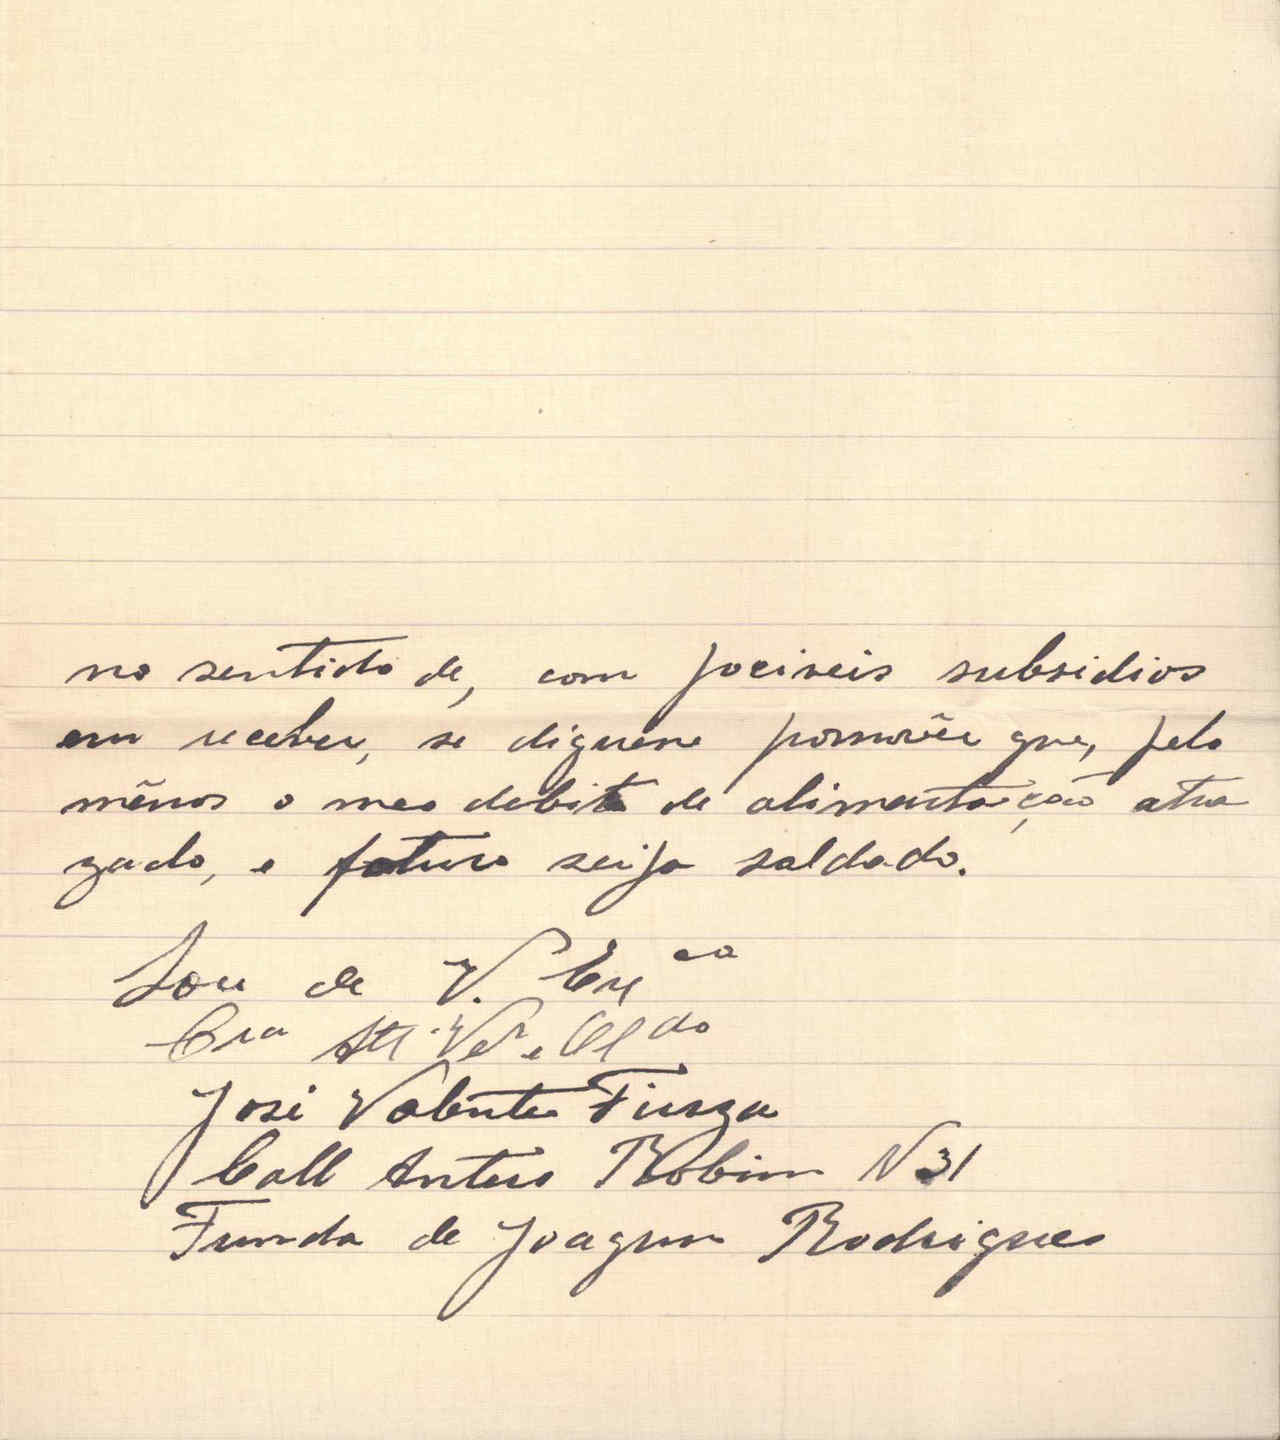 no sentido de, com pociveis subsidios
em receber, se diguene pormovêr que, pelo
mênos o meo debito de alimentaição atra
zado, e foturo seija saldado.
Sou de V. Exª
Cro Attº Veº e
José Valente Fiusza
Call Antero Robim N 31
Funda de Joaqum Rodrigues